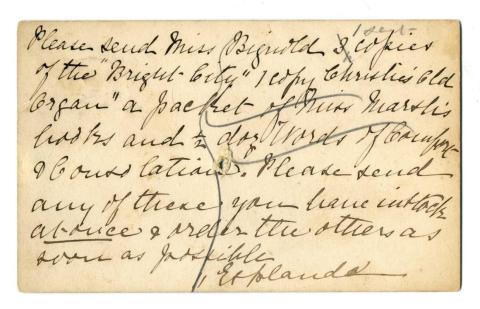 1 sent
Please send Miss Bignold 3 copies
of the "Bright City" 1 copy Christie's Old
Organ" a packet of Miss Marsh's
books and ½ doz Words of Comfort
& Consolation. Please send
any of these you have in stock
at once & order the others as
soon as possible
1, Esplanade